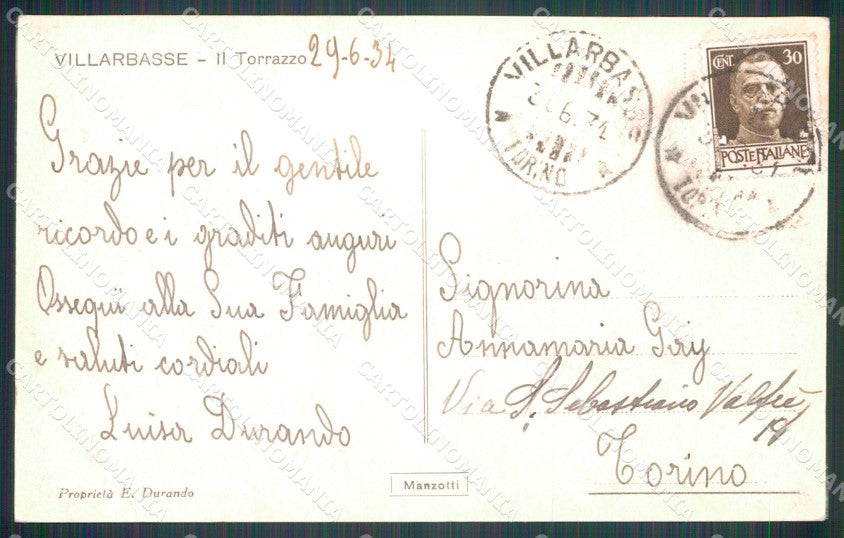 VILLARBASSE - Il Torrazzo 29-6-34
Grazie per il gentile
ricordo e i graditi auguri
Ossequi alla Sua Famiglia
e saluti cordiali
Luisa Durando
Proprietà E. Durando
Manzotti
VILLARBASSE
TORINO
CENT. 30
POSTE ITALIANE
Signorina
Annamaria Gay
Via S. Sebastiano Valfrè
Torino
CARTOLINOMANIA